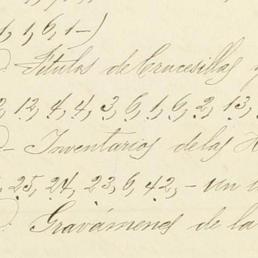 1, 1, 6, 1 -)
) Titulos de Crucesillas y
2, 12, 4, 4, 3, 6, 1, 6, 2, 13,
) - Inventarios de las H
25, 24, 23, 6, 42, - un
) Gravámenes de la